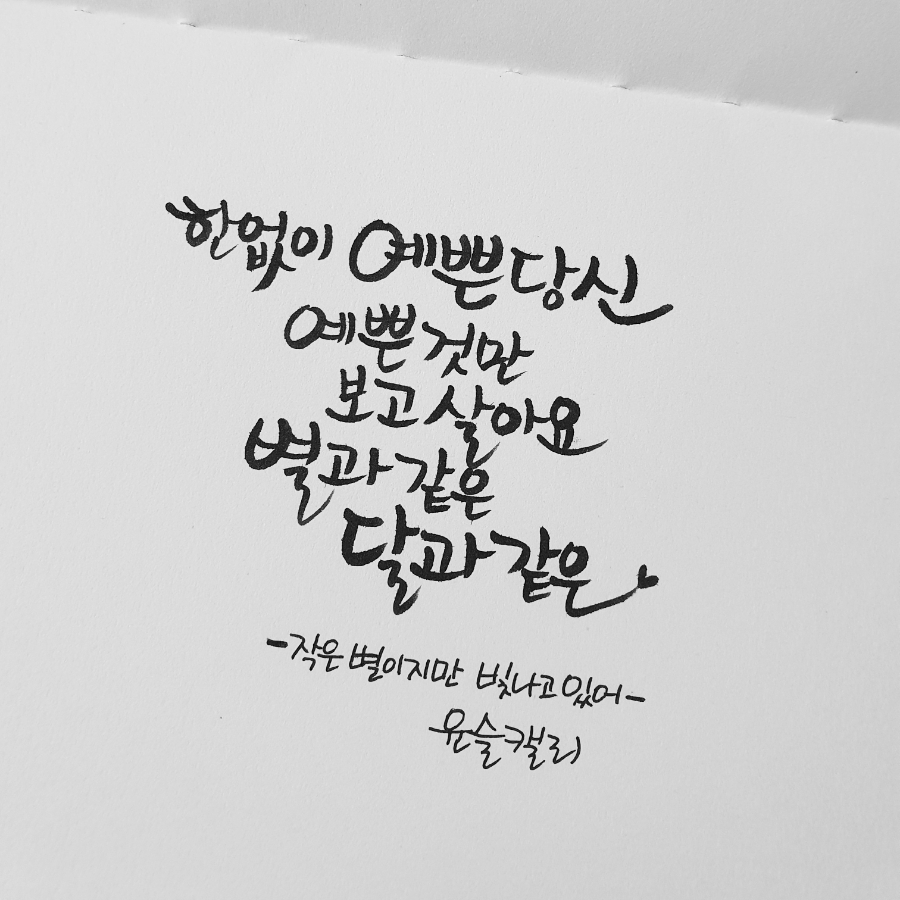 한없이 예쁜 당신
예쁜 것만
보고 살아요
별과 같은
달과 같은
-작은 별이지만 빛나고 있어-
윤슬캘리